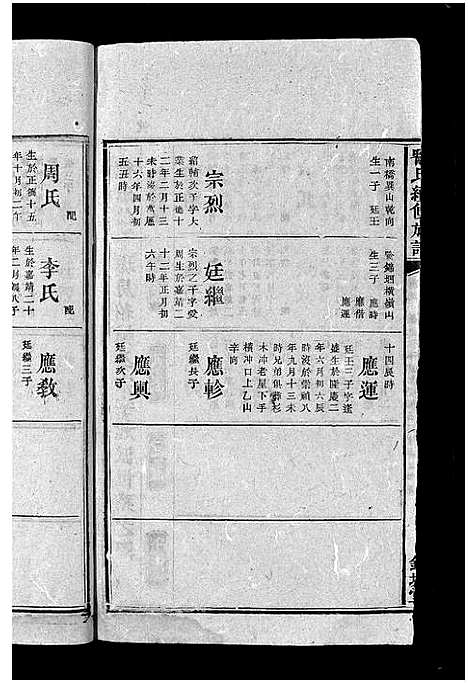 南橋異山乾向
生一子 廷王
宗烈
紹輔次子字大
業生於正德十
二年二月十三
未時沒於萬厯
十六年四月初
五丑時
周氏 配
生於正德十五
年十月初二午
暨錦垇橫嶺山
生三子 應時
應僧
應運
廷繼
宗烈之子字愛
周生於嘉靖二
十二年正月初
六午時
李氏 配
生於嘉靖二十
年二月初八子
十四辰時
應運
廷王三子字達
盛生於隆慶二
年六月初六辰
時沒於崇禎八
年九月十三未
時兄弟俱葬杉
木冲老屋下手
橫冲口上乙山
辛向
應軫
廷繼長子
應興
廷繼次子
應敎
廷繼三子
氏續修族譜